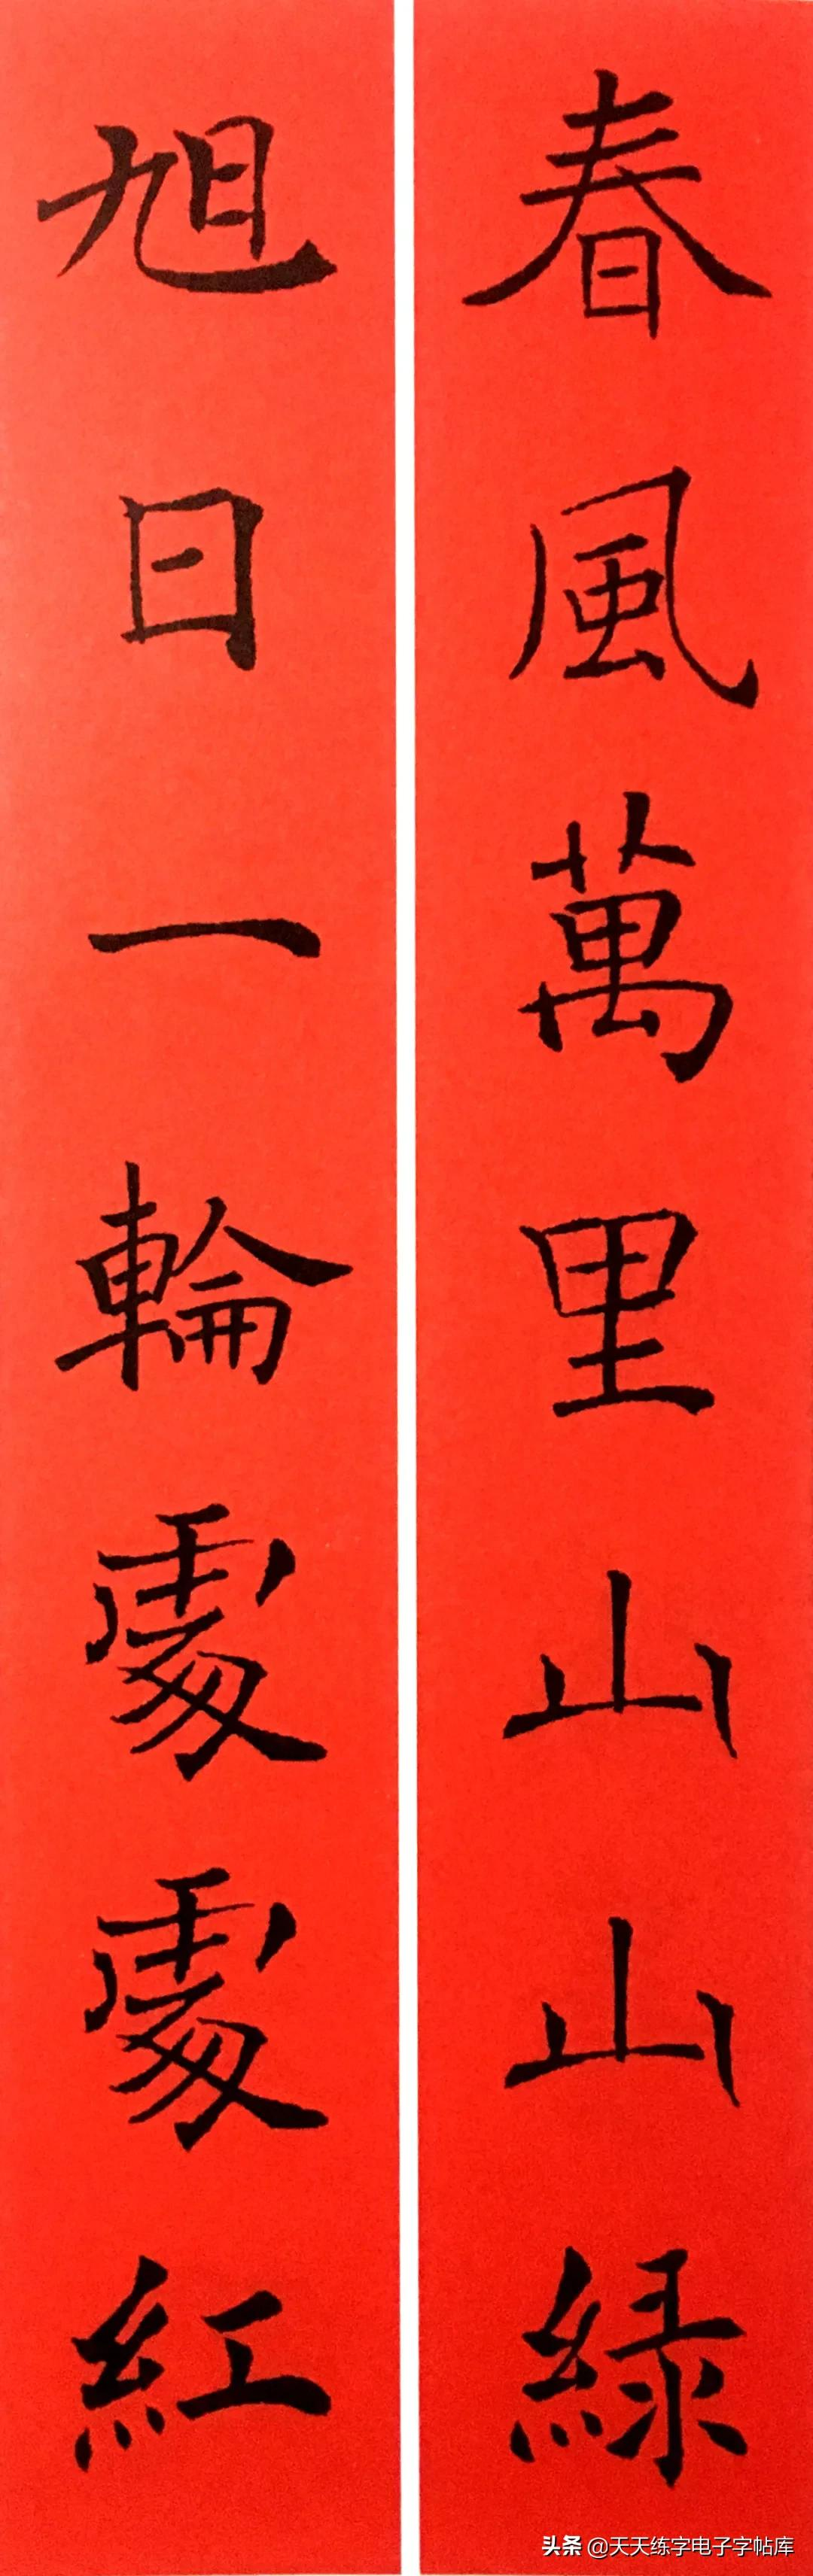 春風萬里山山緑
旭日一輪處處紅
头条 @天天练字电子字帖库